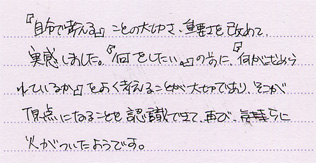 『自分で考える』ことの大切さ、重要さを改めて、
実感しました。『何をしたい。』の前に、『何が求められ
れているか』をよく考えることが大切であり、そこが
頂点になることを認識できて、再び、気持ちに
火がついたようです。